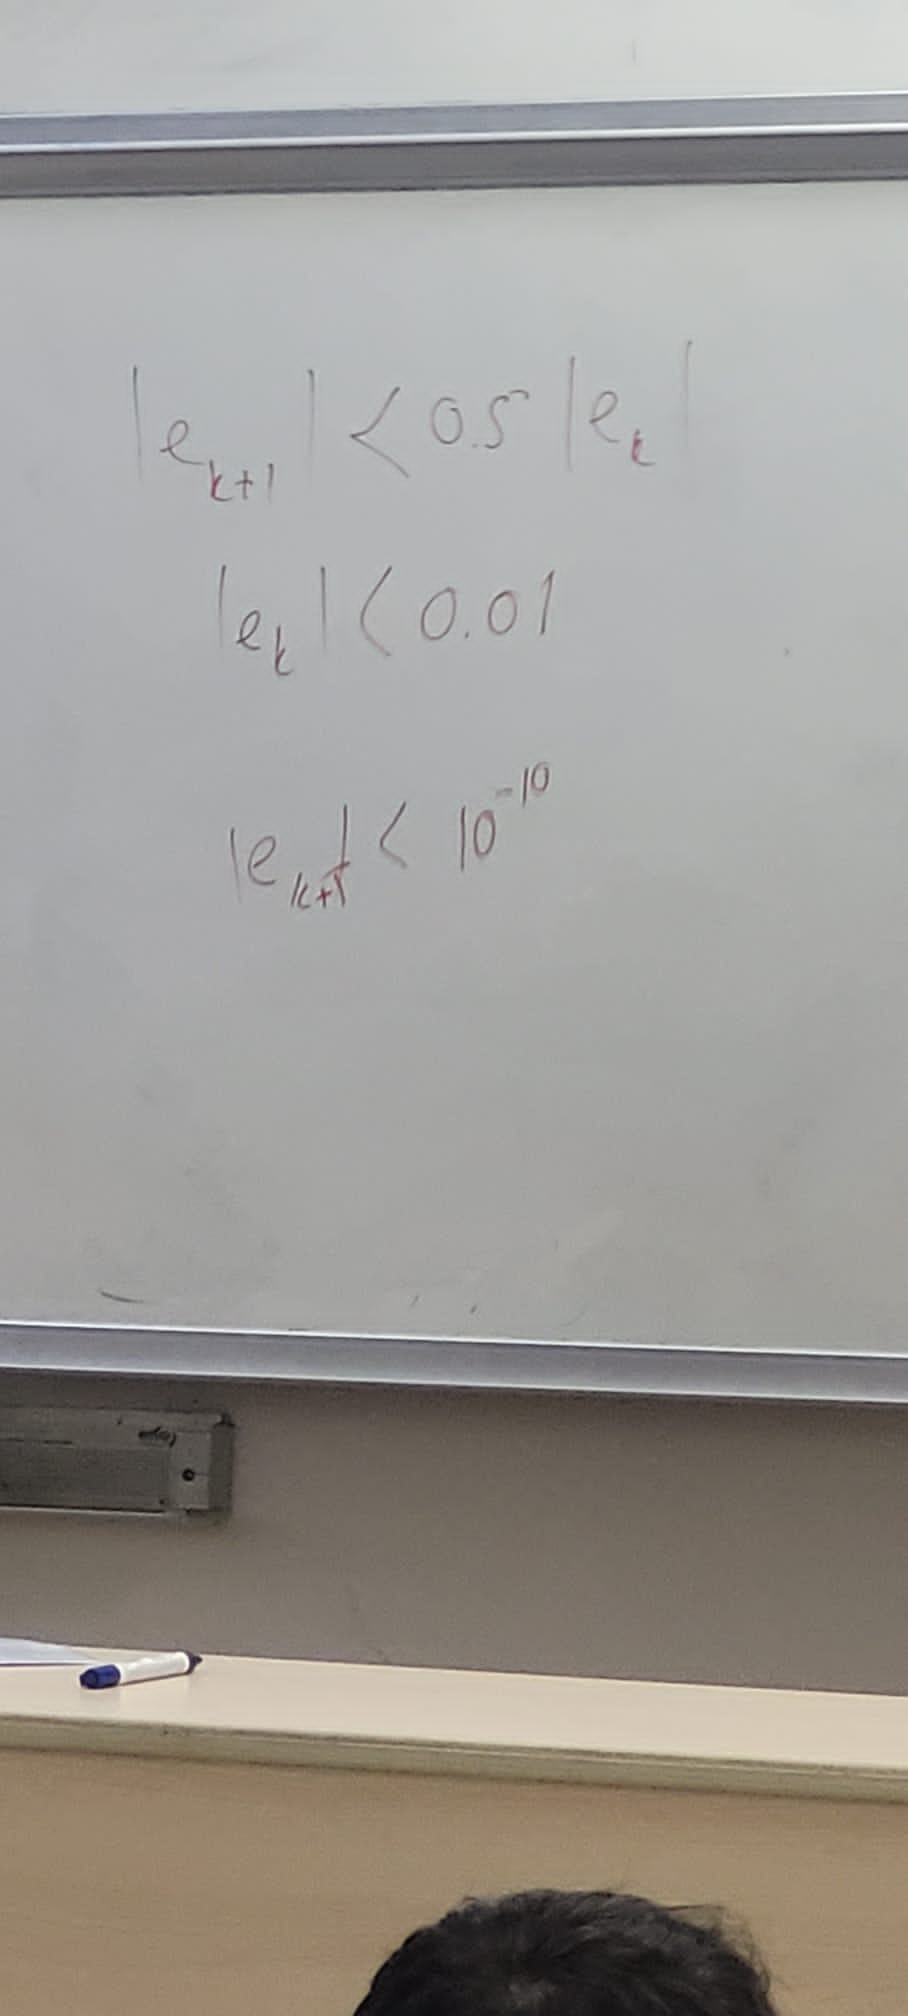 |e_{k+1}| < 0.5 |e_k|
|e_k| < 0.01
|e_{k+1}| < 10^{-10}